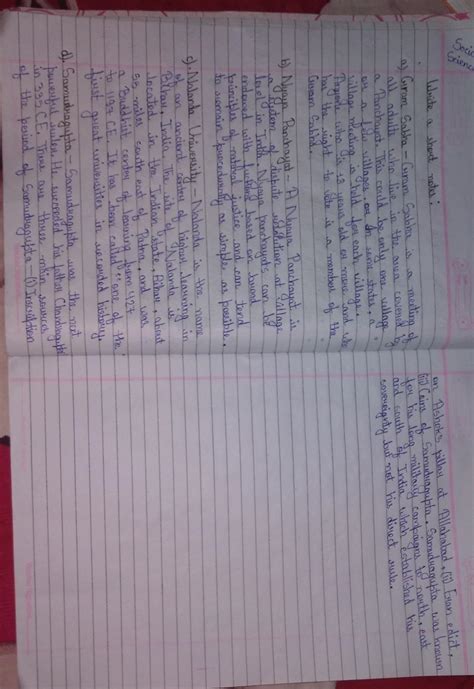 Social
Science
Write a short note:
a) Gram Sabha - Gram Sabha is a meeting of
all adults who live in the area covered by
a Panchayat. This could be only one village
or a few villages. In some states, a
village meeting is held for each village.
Anyone who is 18 years old or more and who
has the right to vote is a member of the
Gram Sabha.
b) Nyaya Panchayat - A Nyaya Panchayat is
a system of dispute resolution at village
level in India. Nyaya panchayats can be
endowed with functions based on broad
principles of natural justice and can tend
to remain procedurally as simple as possible.
c) Nalanda University - Nalanda is the name
of an ancient center of higher learning in
Bihar, India. The site of Nalanda is
located in the Indian state of Bihar, about
55 miles south east of Patna, and was
a Buddhist center of learning from 427
to 1197 CE. It has been called "one of the
first great universities in recorded history.
d) Samudragupta - Samudragupta was the most
powerful ruler. He succeeded his father Chandragupta
in 335 CE. There are three main sources
of the period of Samudragupta - (i) Inscription
on Ashok's pillar at Allahabad, (ii) Eran edict,
(iii) Coins of Samudragupta. Samudragupta was known
for his long military campaigns to north, east
and south of India which established his
sovereignty but not his direct rule.